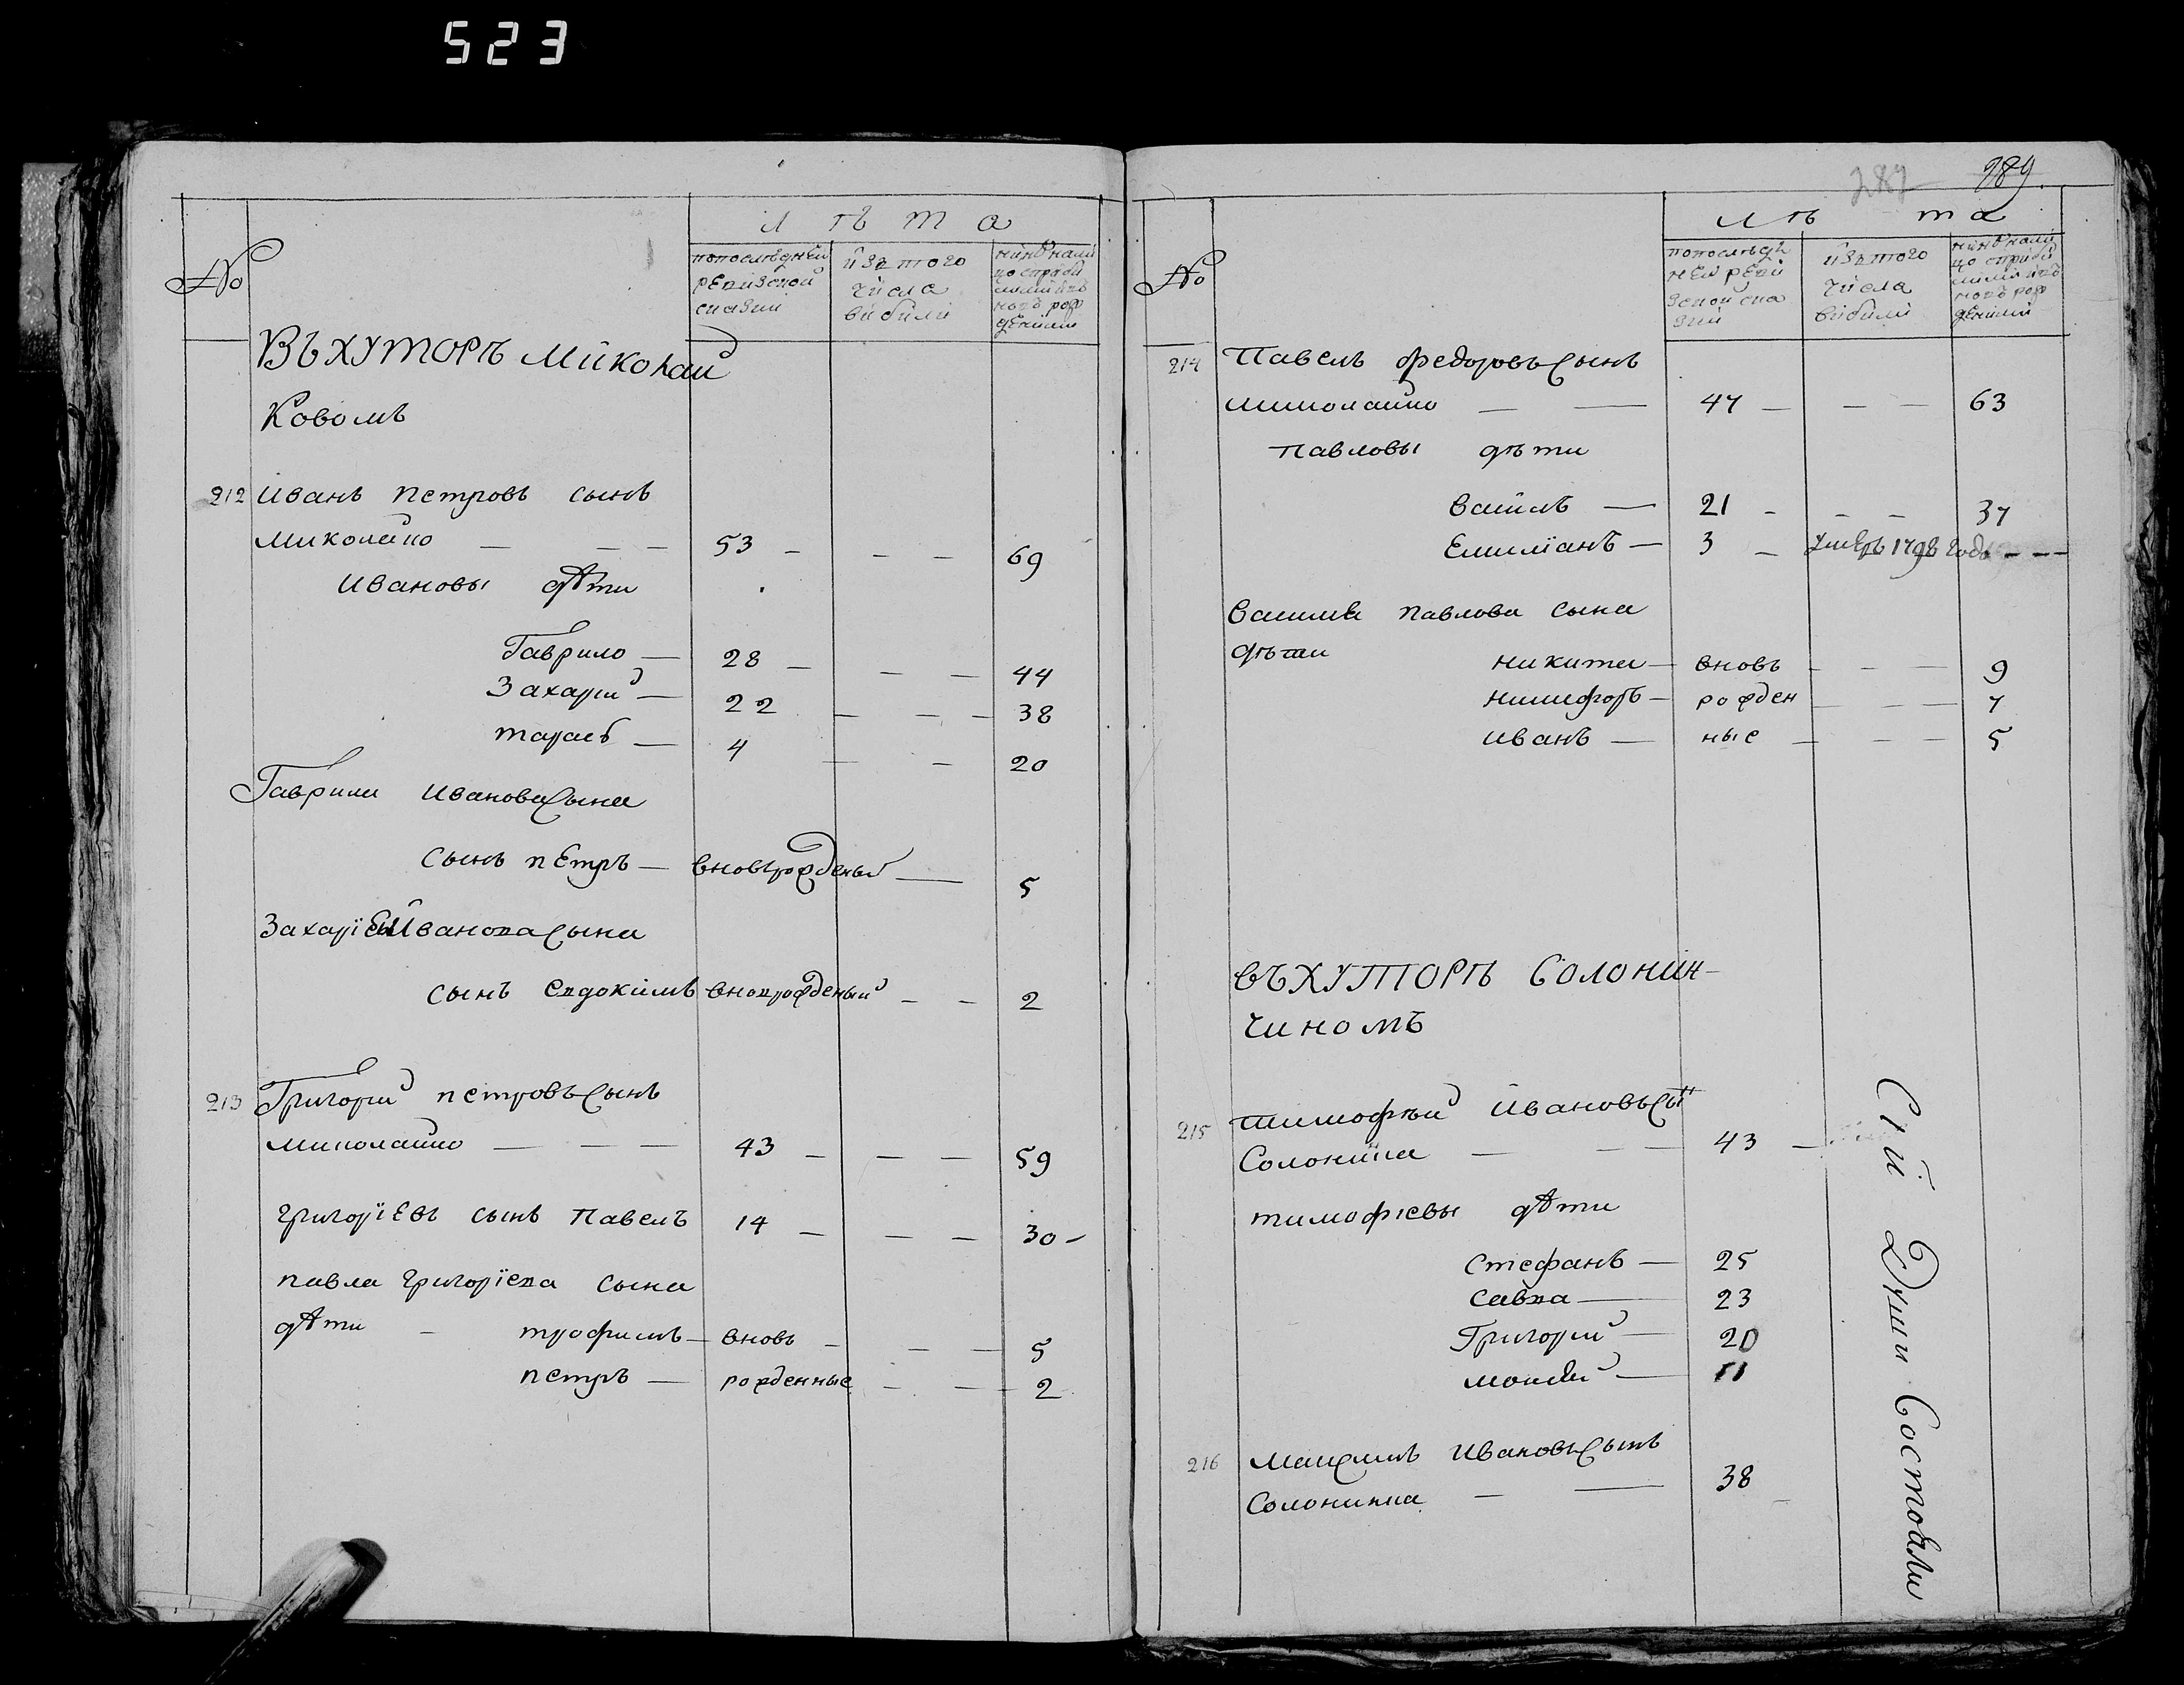 523
№
Лѣта
попоследней ревизской сказки
изъ того числа выбыли
Въ Хуторѣ Миколай
ковомъ
212 Иванъ Петровъ сынъ
Миколайко — — — 53 — — — 69
Ивановы дѣти
Гаврило — 28 — — — 44
Захарий — 22 — — — 38
Тарасъ — 4 — — 20
Гаврили Иванова сына
сынъ Петръ — вновьрожденый — 5
Захарiея Иванова сына
сынъ Евдокимъ вноврожденый — — 2
213 Григорий Петровъ сынъ
Миколайко — — — 43 — — — 59
Григорiевъ сынъ Павелъ 14 — — — 30 —
Павла Григорiева сына
дѣти — Трофимъ — вновь — — — 5
Петръ — рожденные — — 2
287 289.
№
Лѣта
попоследней ревизской сказки
изъ того числа выбыли
214 Павелъ Федоровъ сынъ
Миколайко — — 47 — — — 63
Павловы дѣти
Василь — 21 — — — 37
Емилiанъ — 3 — Умеръ 1798 года — — —
Василия Павлова сына
дѣти Никита — вновь — — — 9
Никифоръ — рожден — — — 7
Иванъ — ные — — — 5
Въ Хуторѣ Солонин-
чиномъ
215 Тимофѣй Ивановъ сынъ
Солонина — — — 43 —
Тимофiевы дѣти
Стефанъ — 25
Савва — 23
Григорий — 20
Моисей — 11
216 Максимъ Ивановъ сынъ
Солонинка — — 38 —
Сiй Души Состояли